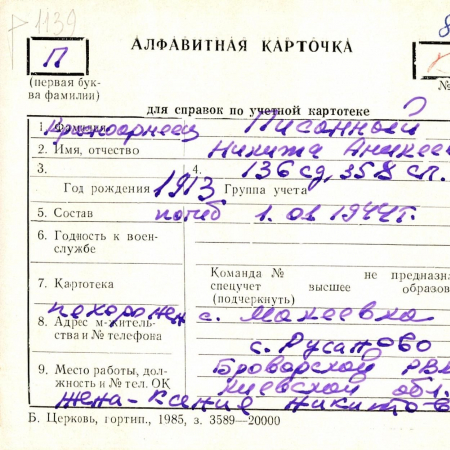 1139
П
АЛФАВИТНАЯ КАРТОЧКА
8
(первая бук-
ва фамилии)
№
для справок по учетной картотеке
1. Фамилия Красноармеец Писанный
2. Имя, отчество Никита Аникее
3. 4. 136 сд, 358 сп.
Год рождения 1913 Группа учета
5. Состав погиб 1.01.1944г.
6. Годность к воен-
службе
7. Картотека
Команда № не предназна
спецучет высшее образов
(подчеркнуть)
похоронен с. Макеевка
8. Адрес м-житель-
ства и № телефона
с. Русаново
9. Место работы, дол-
жность и № тел. ОК
Броварской РВК
Киевской обл.
жена - Ксения Никитов
Б. Церковь, гортип., 1985, з. 3589—20000